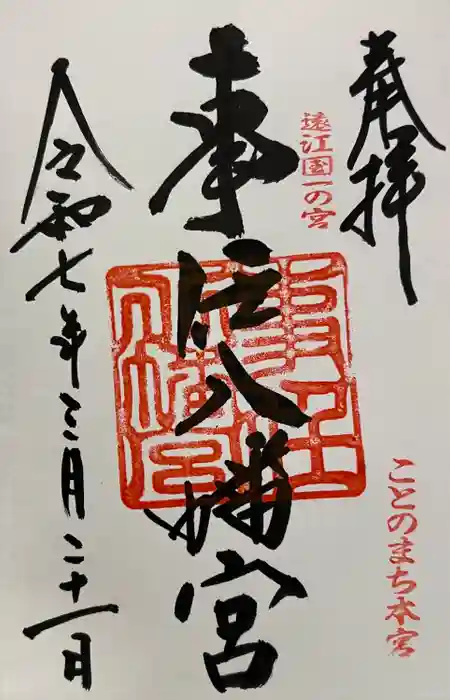 奉拝
遠江國一の宮
ことのまち本宮
事任八幡宮
令和七年三月二十一日